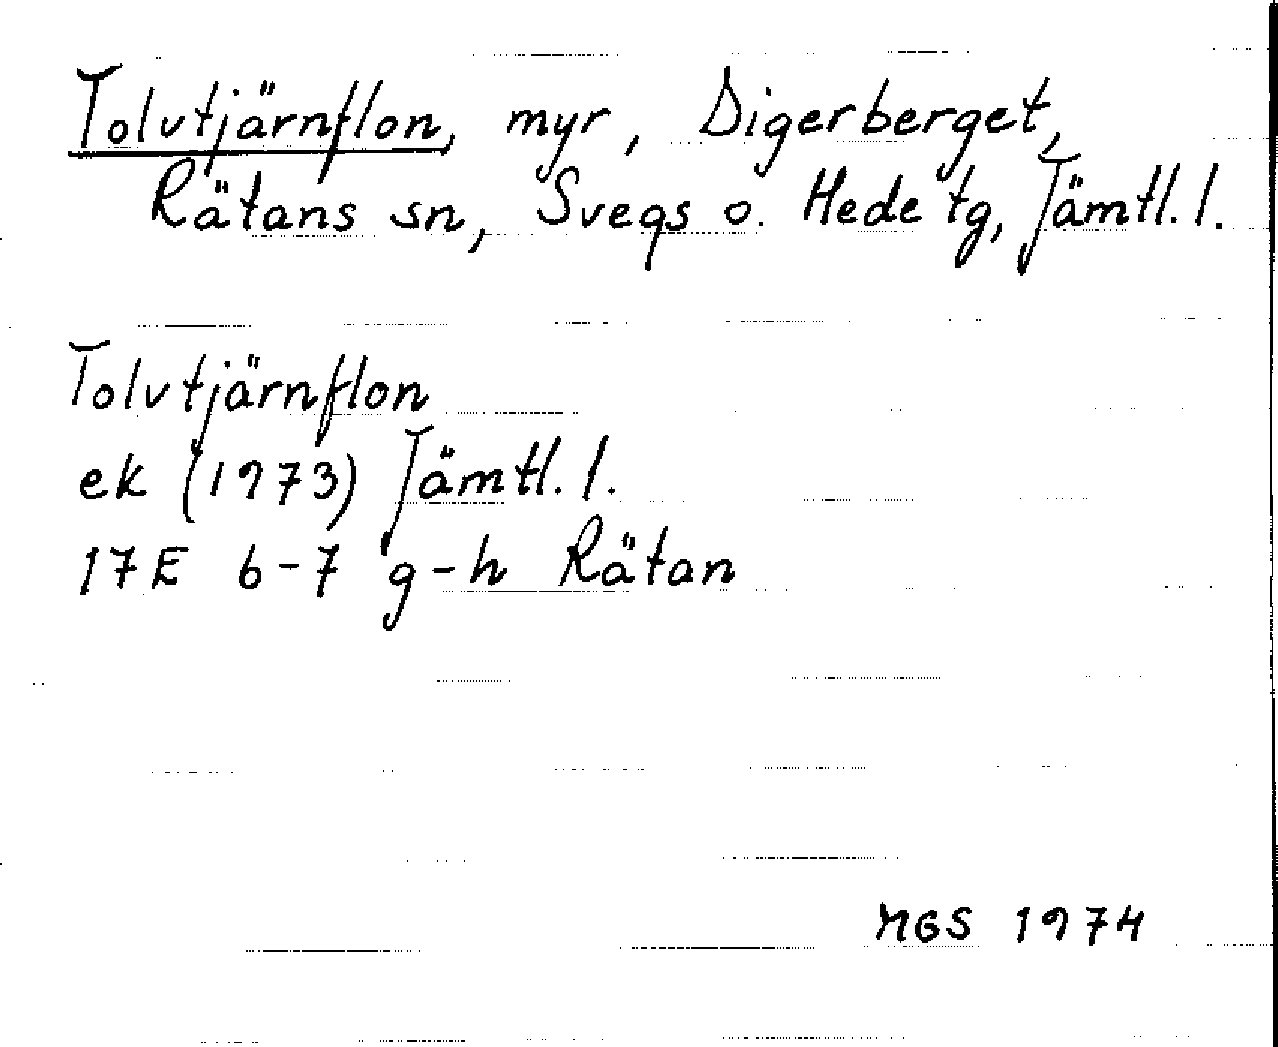 Tolvtjärnflon, myr, Digerberget,
Rätans sn, Svegs o. Hede tg, Jämtl. l.
Tolvtjärnflon
ek (1973) Jämtl. l.
17E 6-7 g-h Rätan
MGS 1974